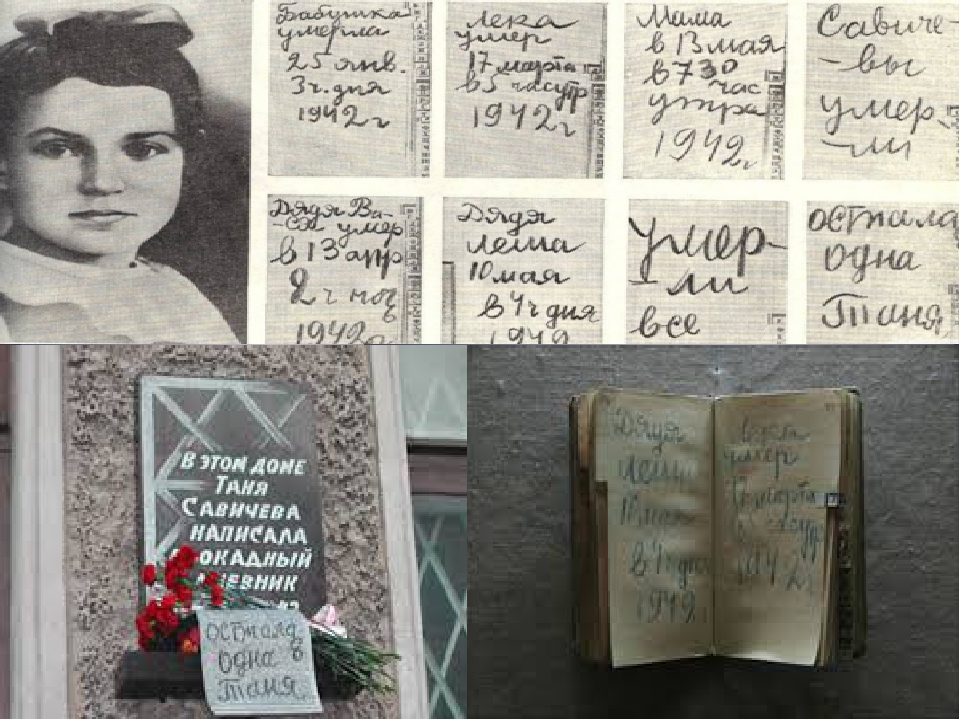 Бабушка
умерла
25 янв.
3ч. дня
1942 г
Лека
умер
17 марта
в 5 часутр
1942 г
Мама
в 13 мая
в 7 30
час
утра
1942 г
Савиче
-вы
умер
-ли
Дядя Ва-
-ся умер
в 13 апр
2 ч ноч
1942 г
Дядя
Леша
10 мая
в 4 ч дня
1942
Умер-
-ли
все
Осталась
одна
Таня
В ЭТОМ ДОМЕ
ТАНЯ
САВИЧЕВА
НАПИСАЛА
БЛОКАДНЫЙ
ДНЕВНИК
ОСТАЛАСЬ
ОДНА
ТАНЯ
Дядя
Леша
10 мая
в 4 ч дня
1942 г
Лека
умер
17 марта
в 5 часутр
1942 г